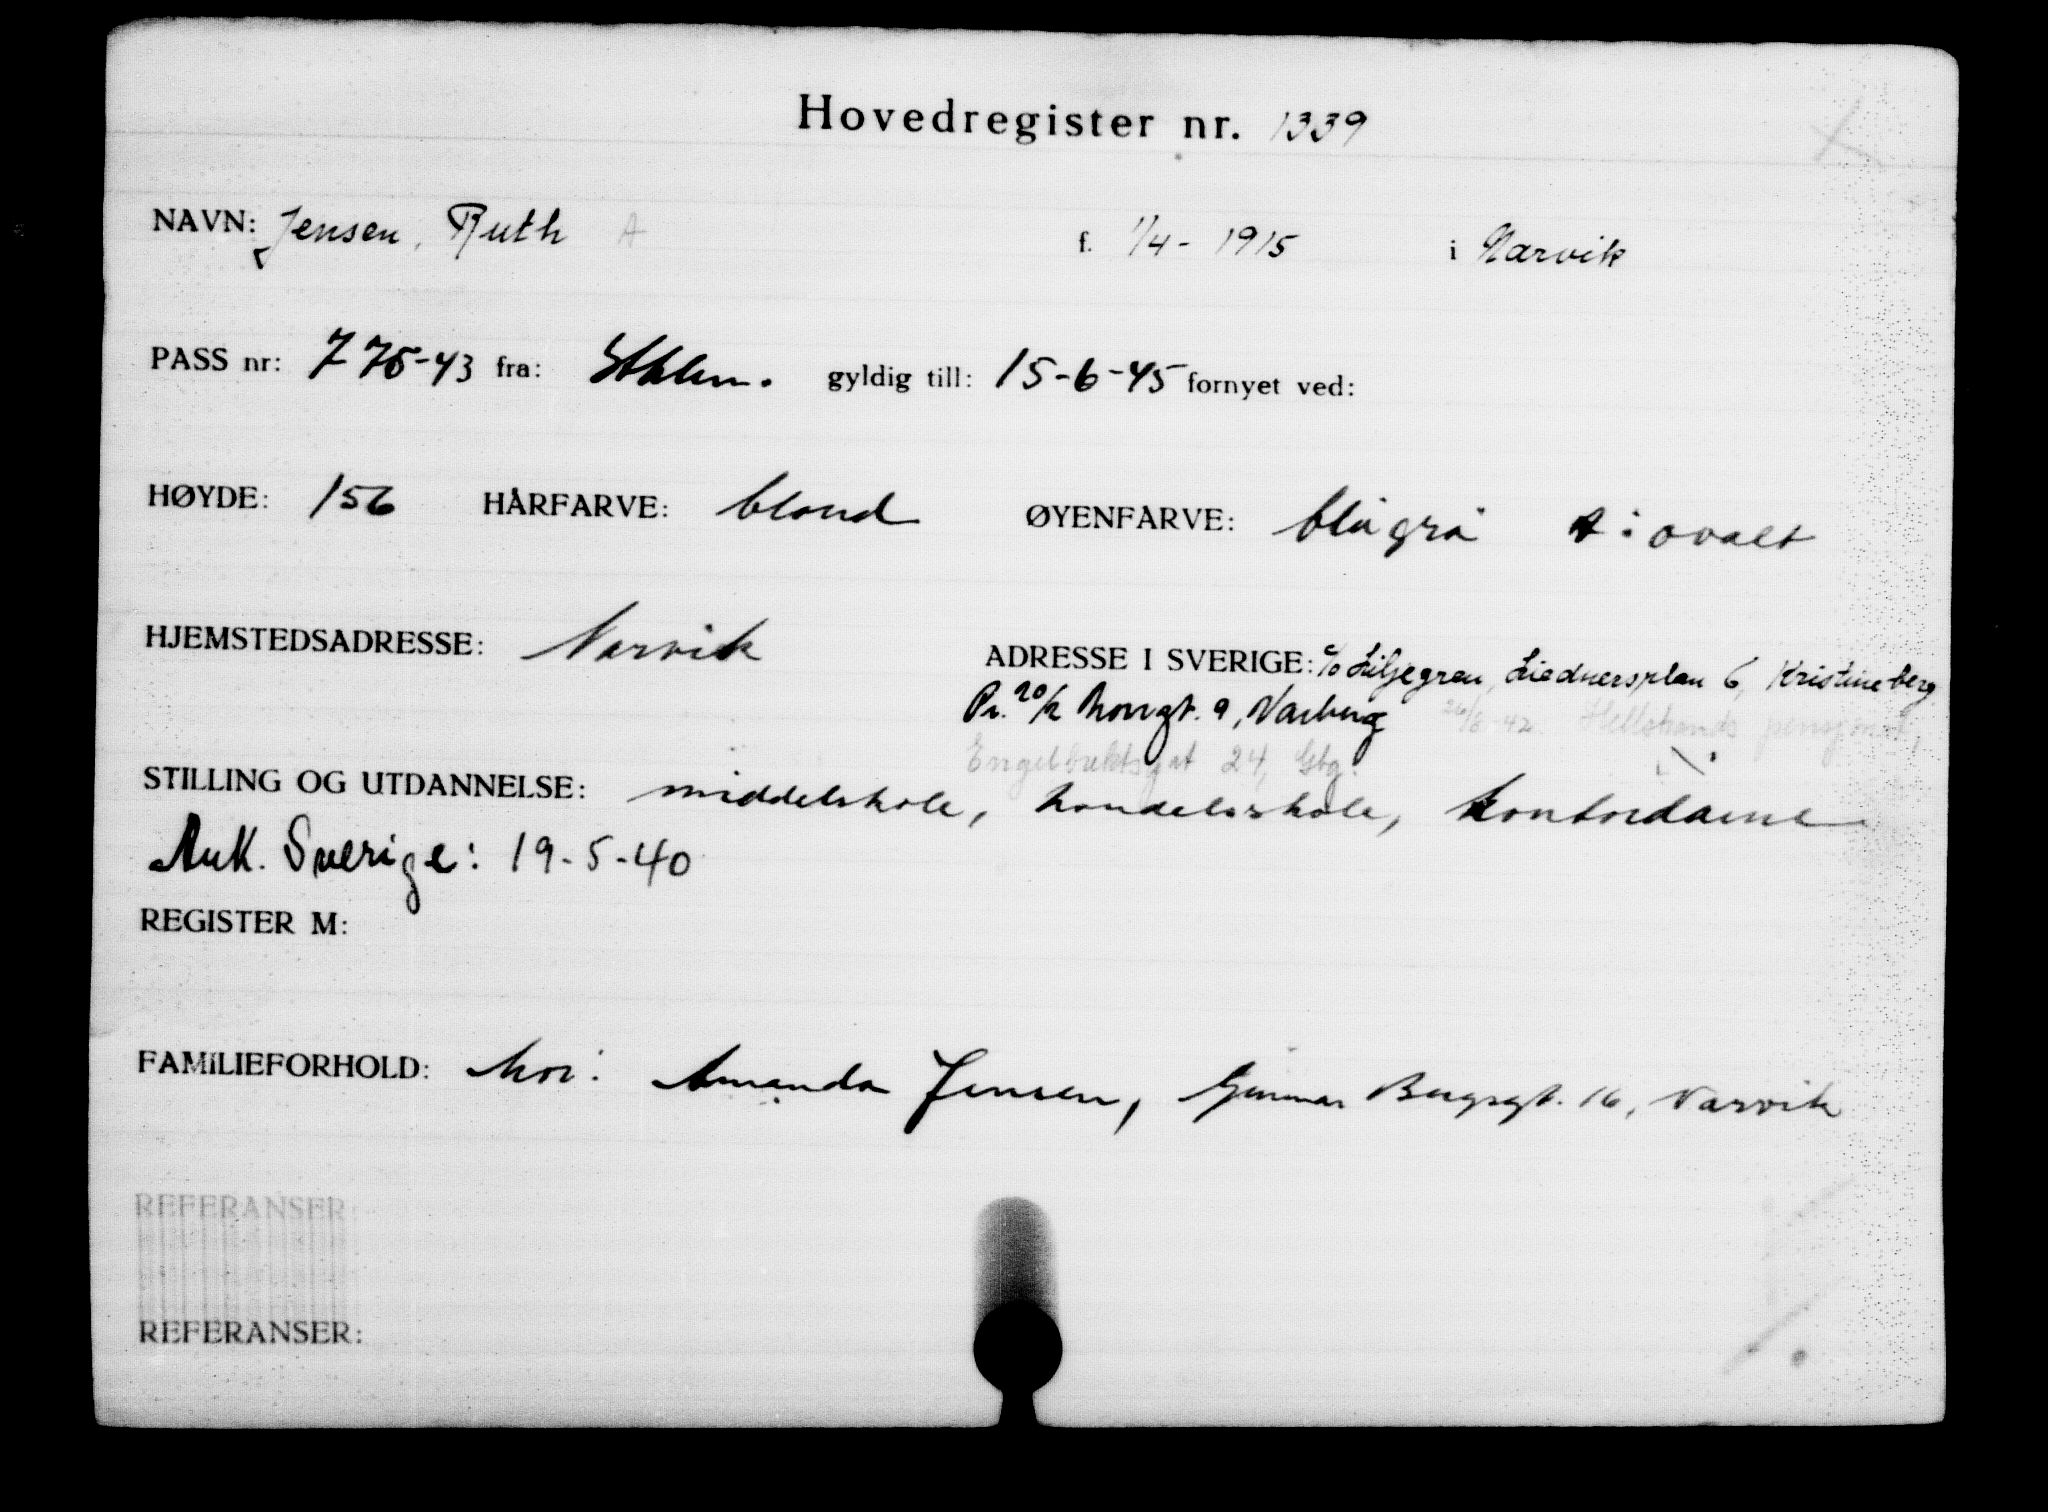 Hovedregister nr. 1339
NAVN: Jensen, Ruth A f. 1/4 - 1915 i Narvik
PASS nr: 775-43 fra: Sthlm. gyldig till: 15-6-45 fornyet ved:
HØYDE: 156 HÅRFARVE: blond ØYENFARVE: blågrå A: ovalt
HJEMSTEDSADRESSE: Narvik ADRESSE I SVERIGE: c/o Liljegren, Liednersplan 6, Kristineberg
Pr. 20/2 Norrgt. 9, Varberg 26/6-42. Hellstrands pensjonat,
Engelbrektsgat 24, Gbg.
STILLING OG UTDANNELSE: middelskole, handelsskole, kontordame
Ank. Sverige: 19-5-40
REGISTER M:
FAMILIEFORHOLD: Mor: Amanda Jensen, Gunnar Bergsgt. 16, Narvik
REFERANSER:
REFERANSER: